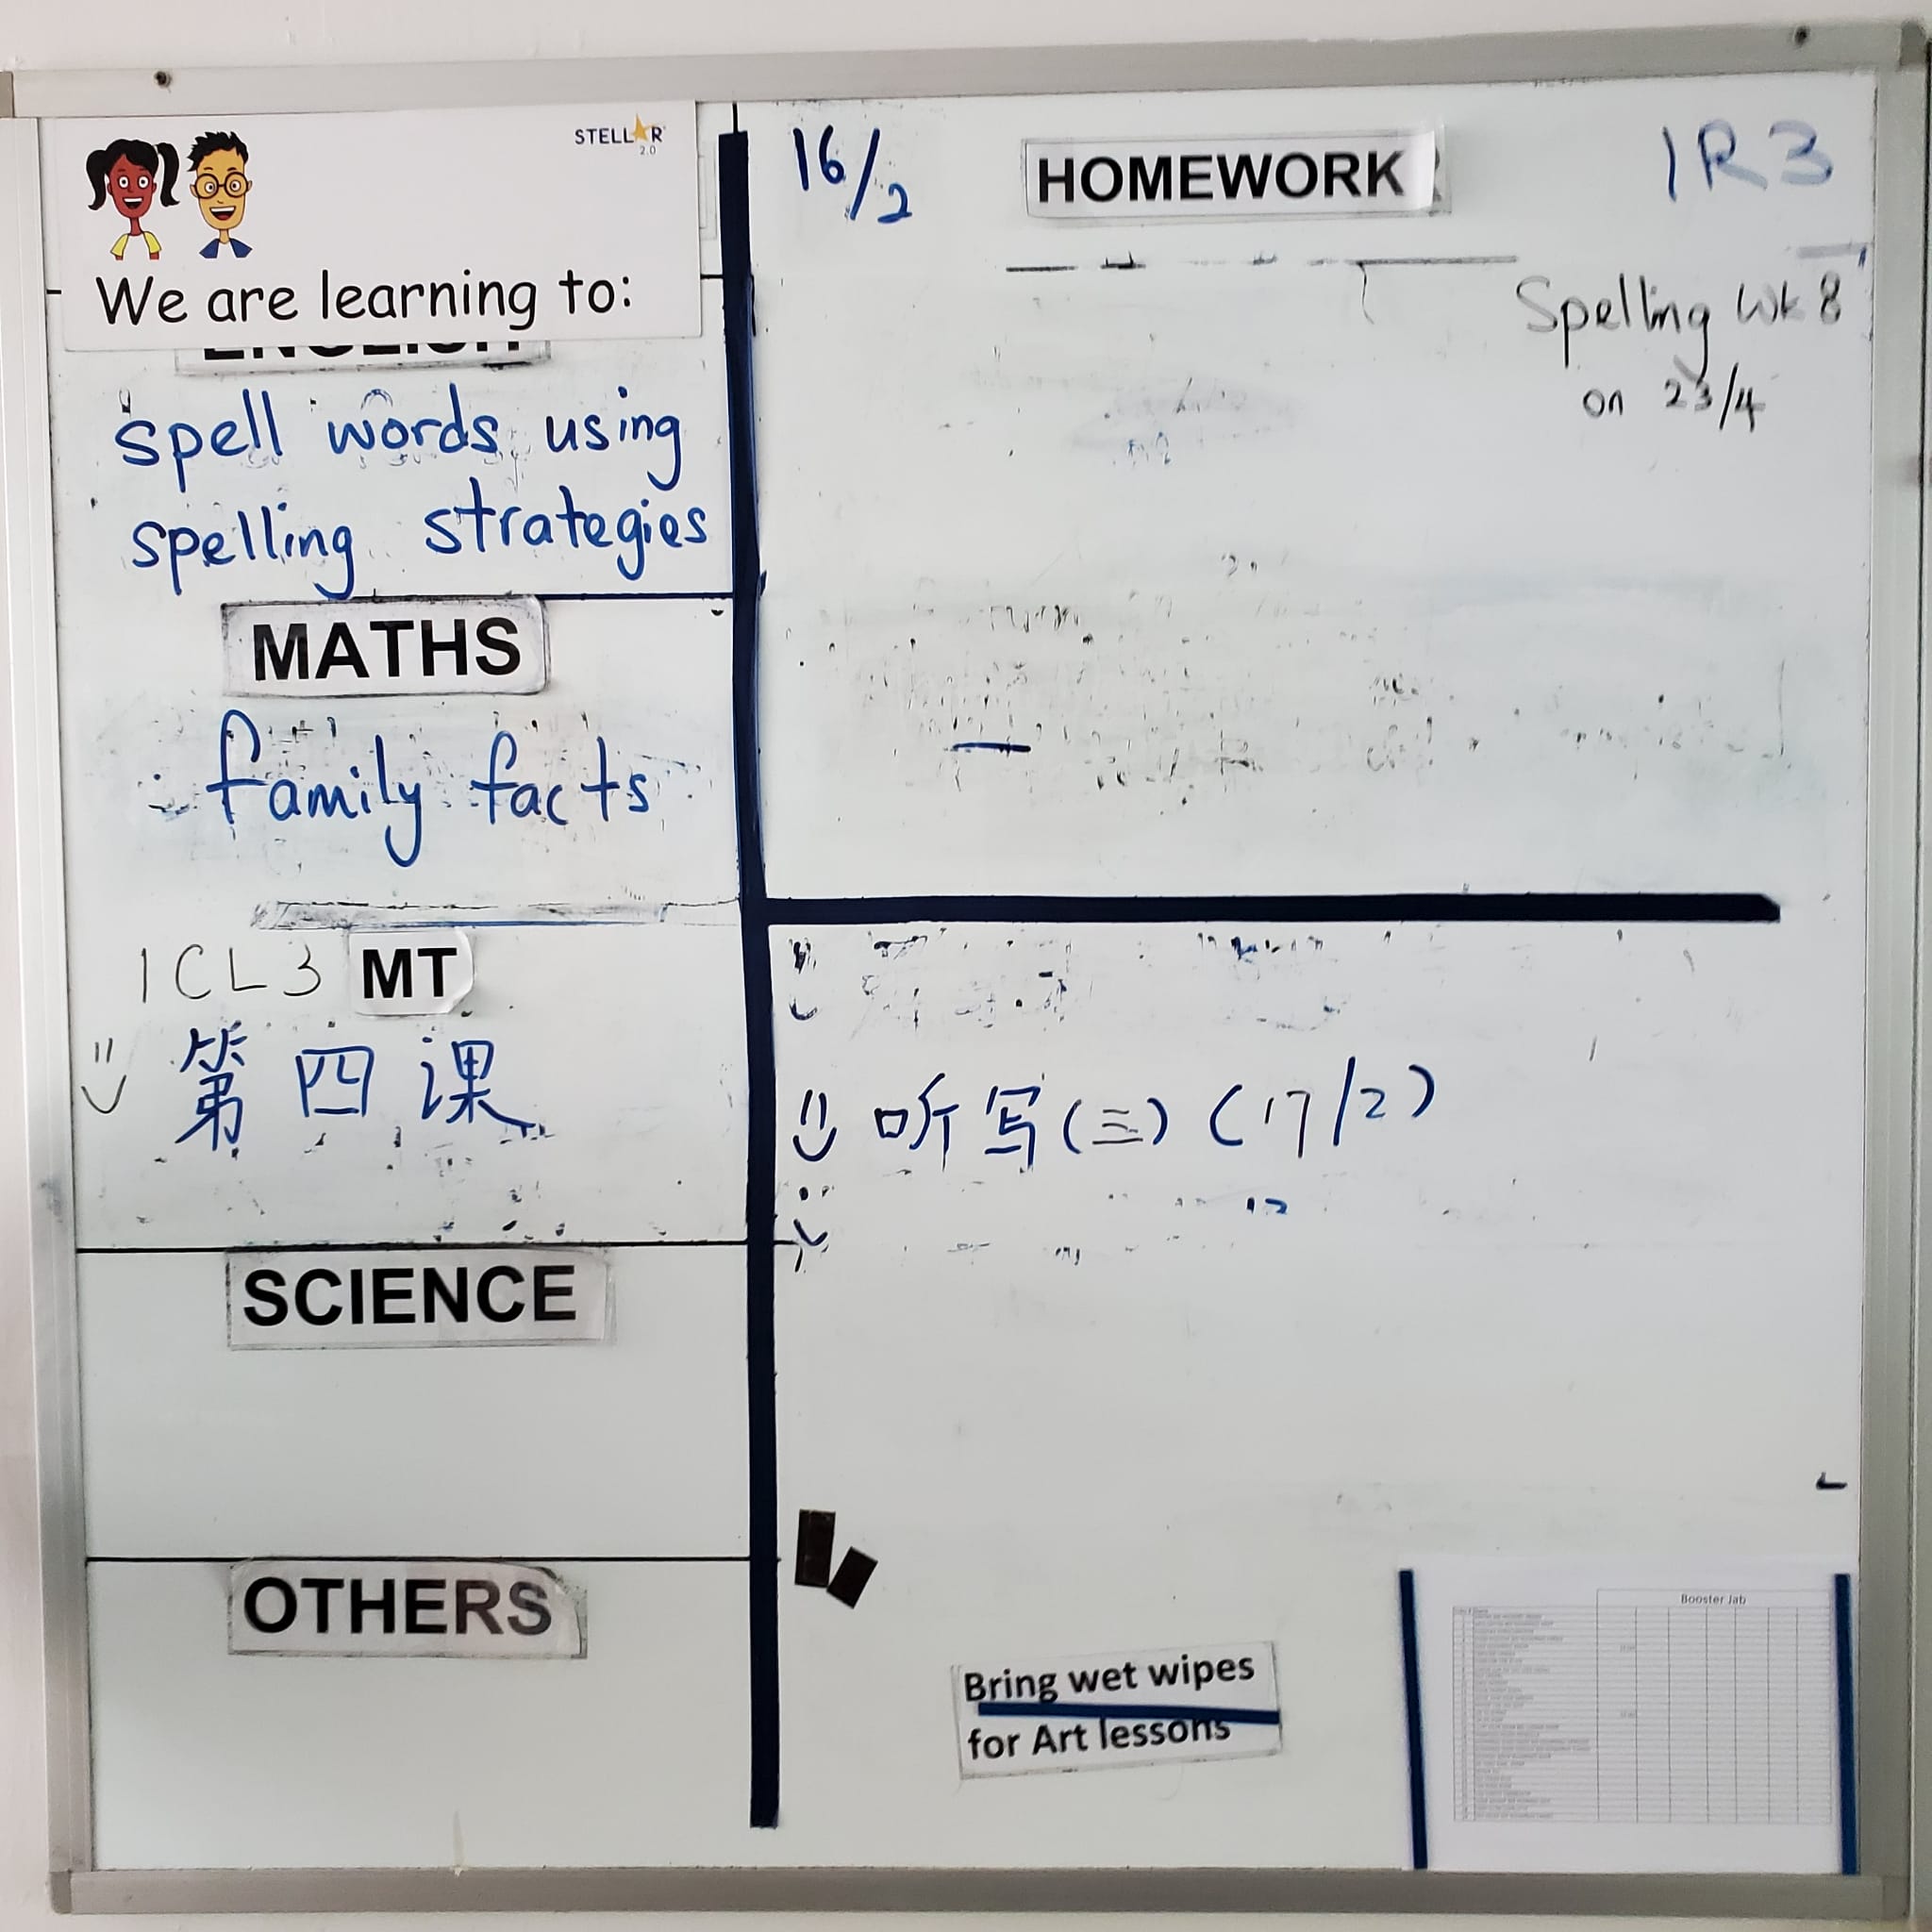 STELLAR
2.0
We are learning to:
ENGLISH
spell words using
spelling strategies
MATHS
family facts
1CL3 MT
第四课
SCIENCE
OTHERS
16/2
HOMEWORK
1R3
Spelling Wk 8
on 23/4
听写(三) (17/2)
Bring wet wipes
for Art lessons
Booster Jab